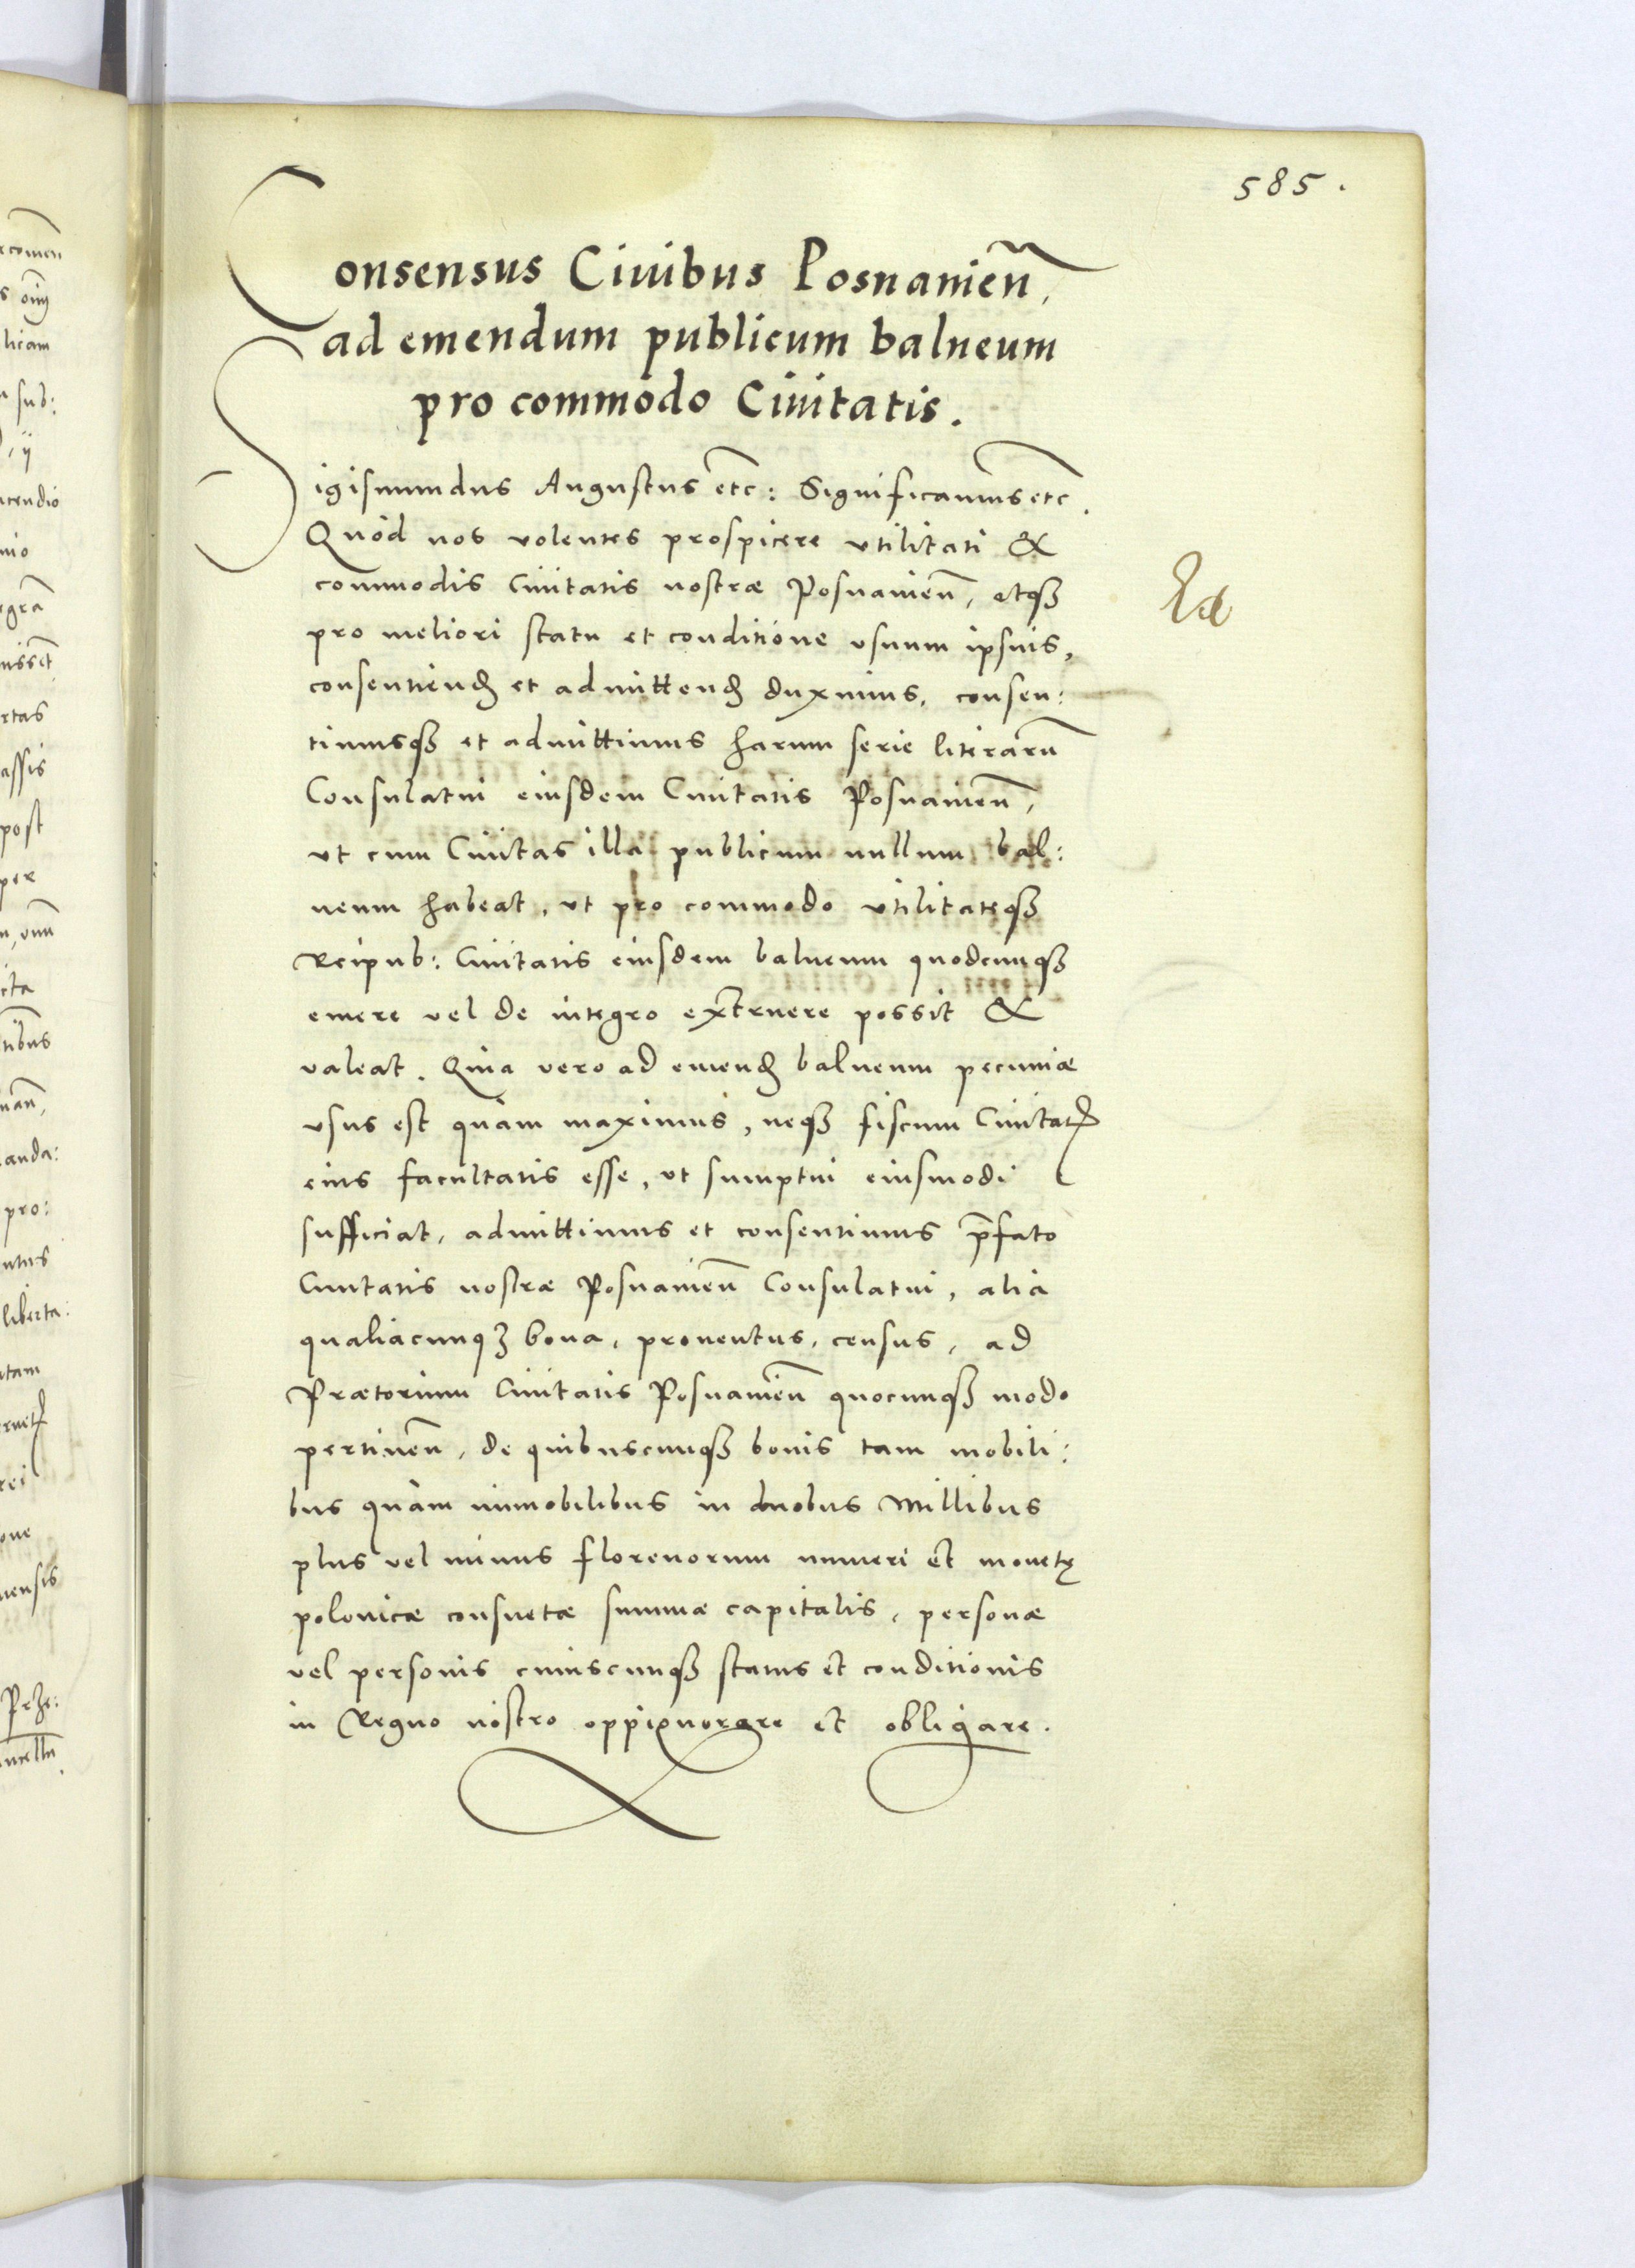 585.
Consensus Ciuibus Posnanień.
ad emendum publicum balneum
pro commodo Ciuitatis.
Sigismundus Augustus etc: Significamus etc.
Quòd nos volentes prospicere vtilitati &
commodis Ciuitatis nostræ Posnanieñ, atqꝫ
pro meliori statu et conditione vsuum ipsius,
consentienđ et admittenđ duximus, consen:
timusqꝫ et admittimus harum serie literarũ
Consulatui eiusdem Ciuitatis Posnanieñ,
vt cum Ciuitas illa publicum nullum bal:
neum habeat, vt pro commodo vtilitateqꝫ
Reipub: Ciuitatis eiusdem balneum quodcunqꝫ
emere vel de integro extruere possit &
valeat. Quia vero ad emenđ balneum pecuniæ
vsus est quàm maximus, neqꝫ fiscum Ciuitatꝭ
eius facultatis esse, vt sumptui eiusmodi
sufficiat, admittimus et consentimus p̃fato
Ciuitatis nostræ Posnanieñ Consulatui, alia
qualiacunqꝫ bona, prouentus, census, ad
Prætorium Ciuitatis Posnanieñ quocunqꝫ modo
pertineñ, de quibuscunqꝫ bonis tam mobili:
bus quàm immobilibus in duobus Millibus
plus vel minus florenorum numeri et monetę
polonicæ consuetæ summæ capitalis, personæ
vel personis cuiuscunqꝫ status et conditionis
in Regno nostro oppignorare et obligare.